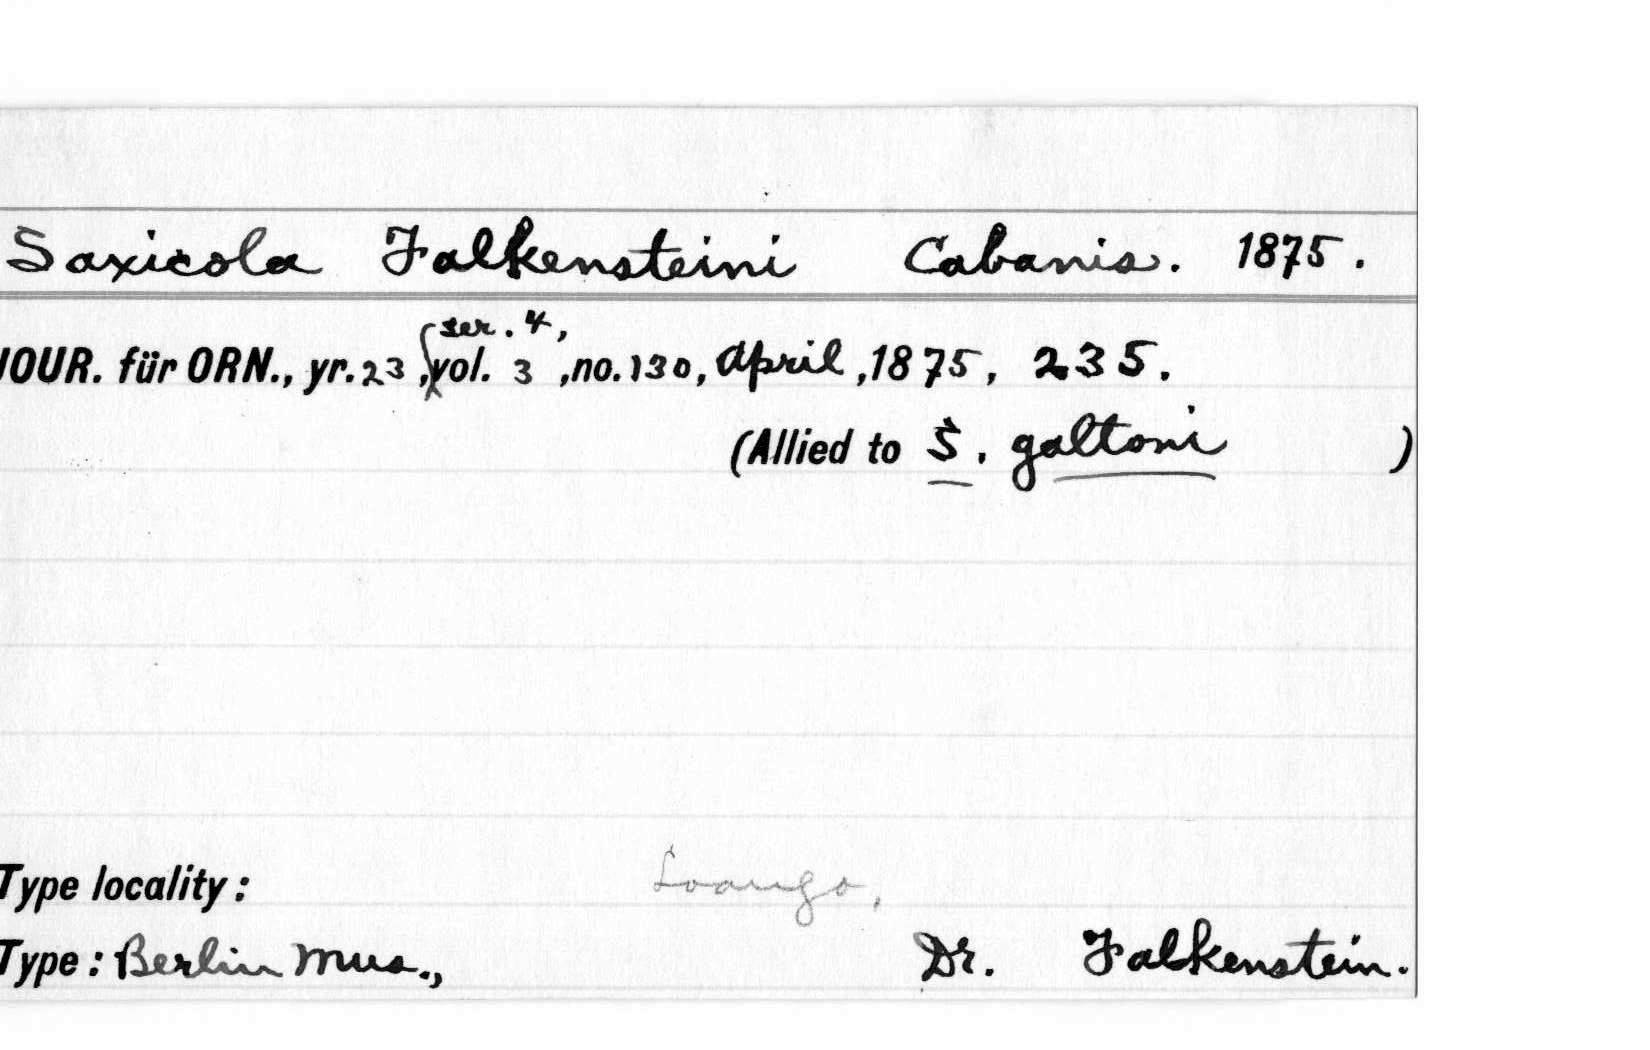 Saxicola Falkensteini Cabanis. 1875.
ser. 4,
JOUR. für ORN., yr. 23, vol. 3, no. 130, April, 1875, 235.
(Allied to S. galtoni )
Type locality: Loango,
Type: Berlin Mus., Dr. Falkenstein.